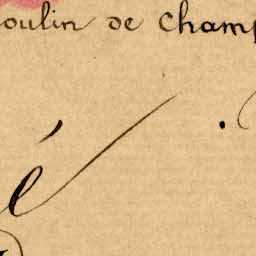 oulin de Champ
é